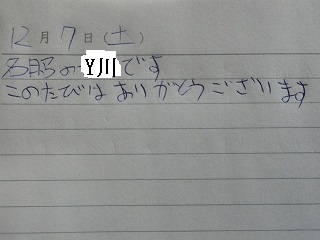 12月7日(土)
名張のY川です
このたびはありがとうございます